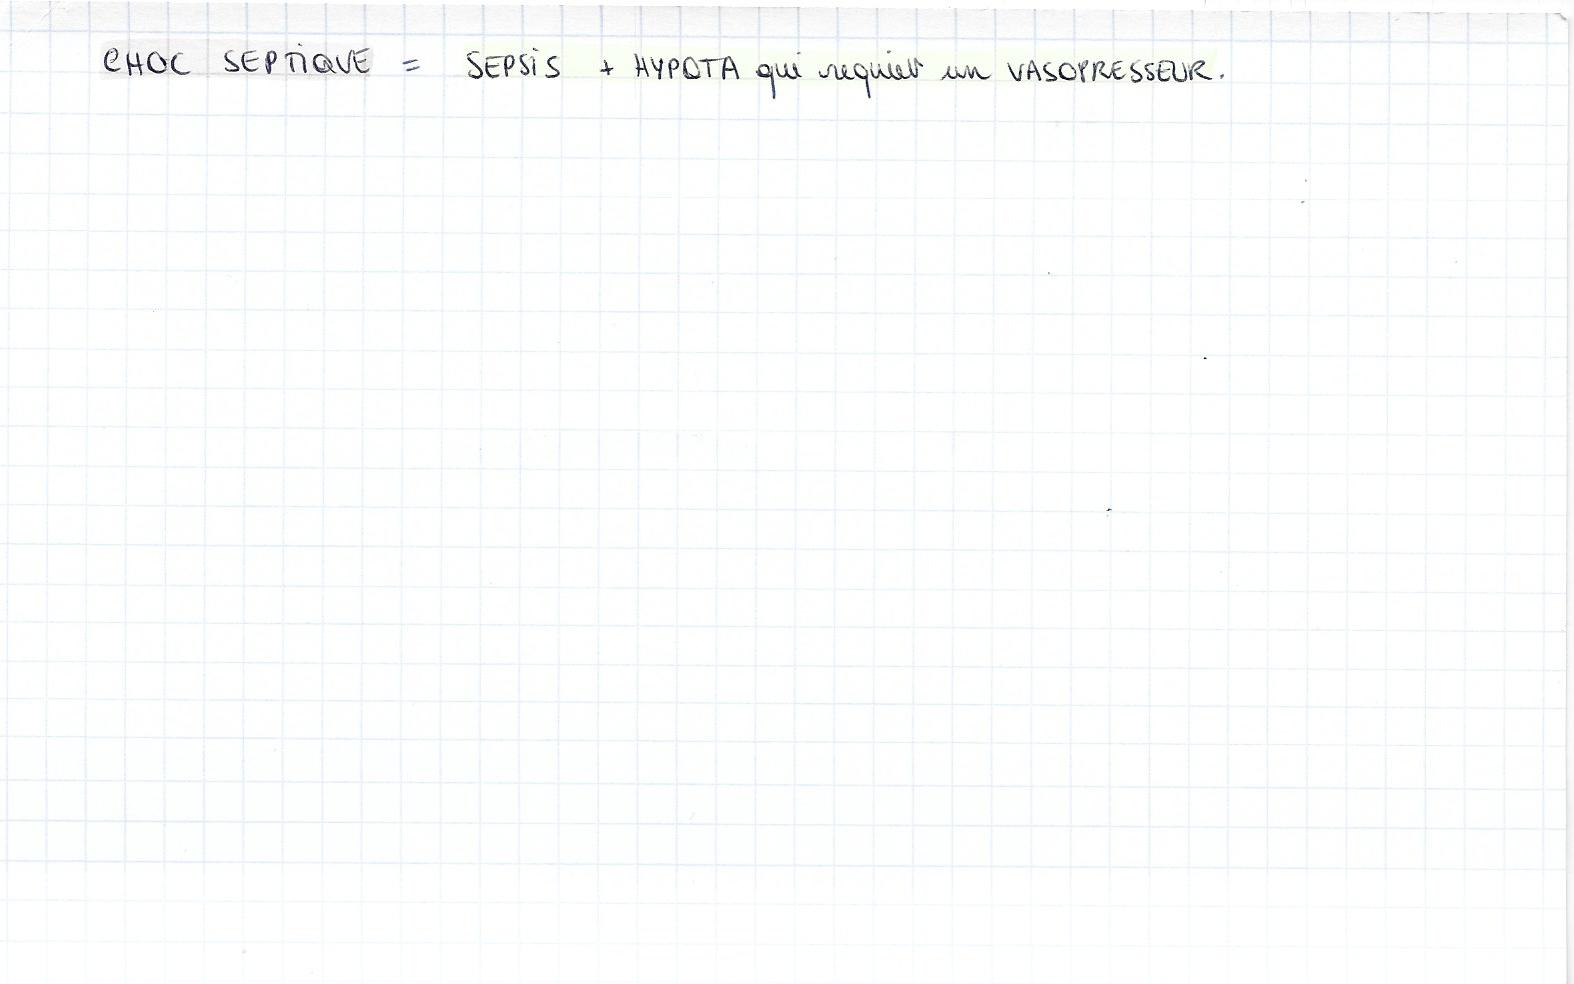 CHOC SEPTIQUE = SEPSIS + HYPOTA qui requiert un VASOPRESSEUR.